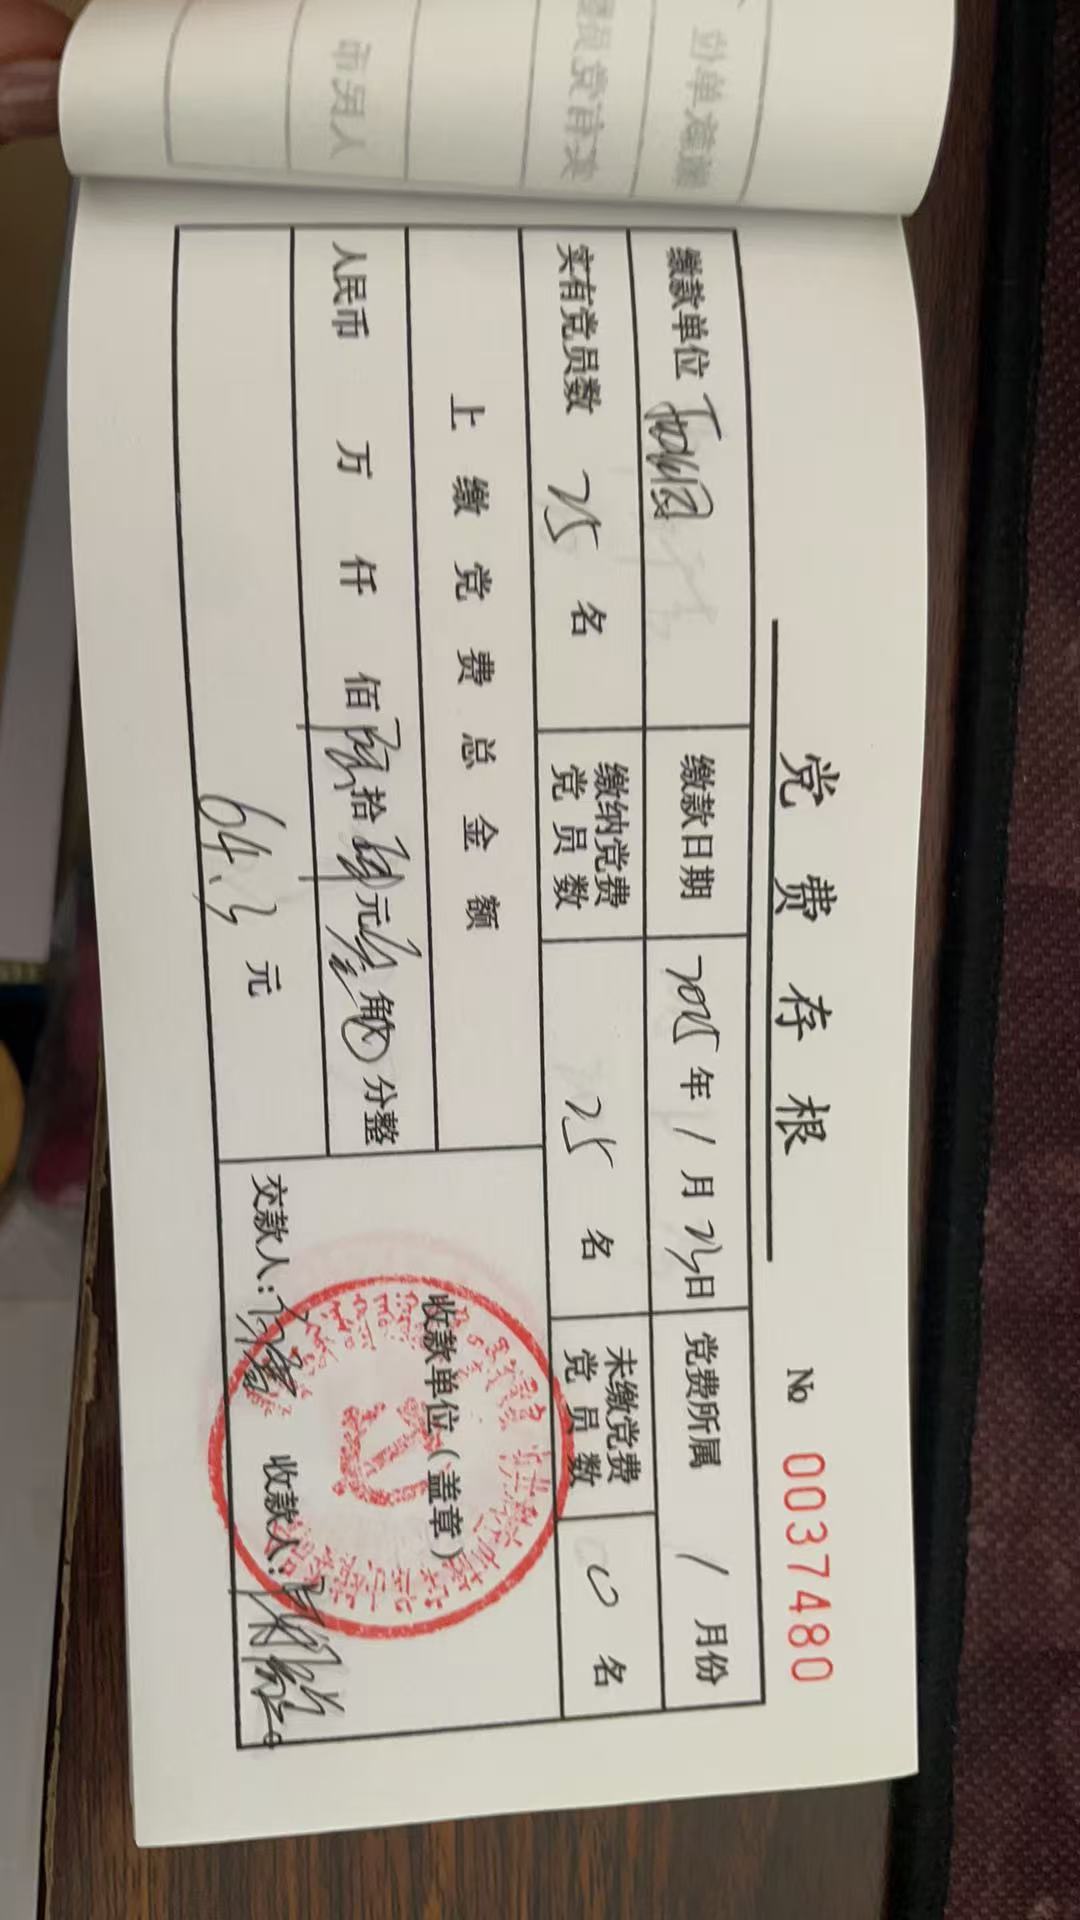 党费存根
No 0037480
缴款单位 缴款日期 2025年1月23日 党费所属 1月份
实有党员数 25名 缴纳党费党员数 25名 未缴党费党员数 0名
上缴党费总金额
收款单位（盖章）
人民币 万 仟 佰 陆拾 肆元叁角 分整
64.3元
交款人： 收款人：